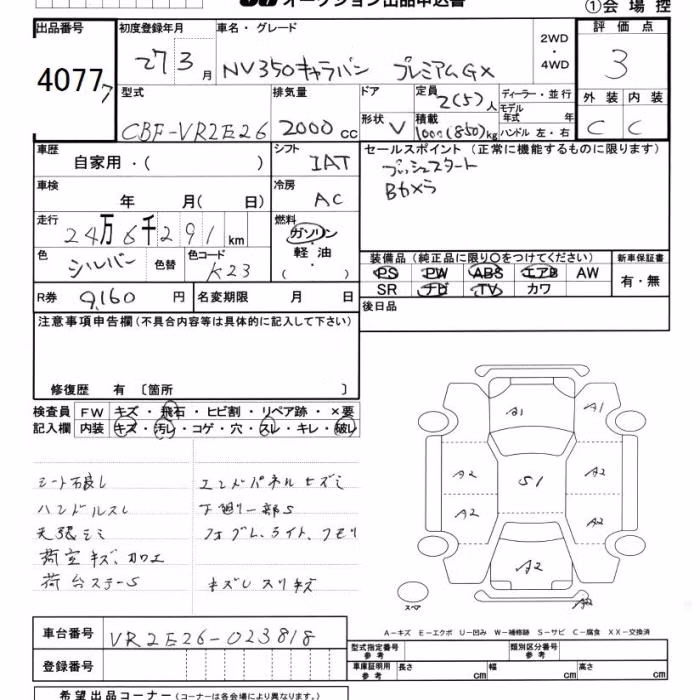 オークション出品申込書
①会場控
出品番号 4077 7
初度登録年月 27 3月
車名・グレード NV350キャラバン プレミアムGX
2WD・4WD
評価点 3
型式 CBF-VR2E26
排気量 2000cc
ドア
形状 V
定員 2(5)人
積載 1000(850)kg
ディーラー・並行
モデル年式 年
ハンドル 左・右
外装 C
内装 C
車歴 自家用・( )
シフト IAT
セールスポイント(正常に機能するものに限ります)
プッシュスタート
Bカメラ
車検 年 月( 日)
冷房 AC
走行 24万6千291km
燃料 ガソリン・軽油・( )
色 シルバー
色替
色コード K23
装備品(純正品に限り〇をつけてください)
PS PW ABS エアB AW
SR ナビ TV カワ
新車保証書 有・無
R券 9,160円
名変期限 月 日
後日品
注意事項申告欄(不具合内容等は具体的に記入して下さい)
修復歴 有〔箇所 〕
検査員記入欄
FW キズ・飛石・ヒビ割・リペア跡・×要
内装 キズ・汚レ・コゲ・穴・スレ・キレ・破レ
ハンドルスレ
下廻り一部S
A1 A1
A2 S1 A2
A2 A2
A2
A2
スペア
A-キズ E-エクボ U-凹み W-補修跡 S-サビ C-腐食 XX-交換済
車台番号 VR2E26-023818
登録番号
型式指定番号 参考
類別区分番号 参考
車庫証明用 参考 長さ cm 幅 cm 高さ cm
希望出品コーナー(コーナーは各会場により異なります。)